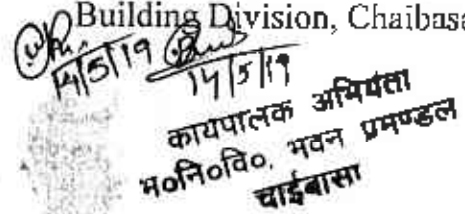 Building Division, Chaibasa
14/5/19
14/5/19
कार्यपालक अभियंता
भ०नि०वि०, भवन प्रमण्डल
चाईबासा